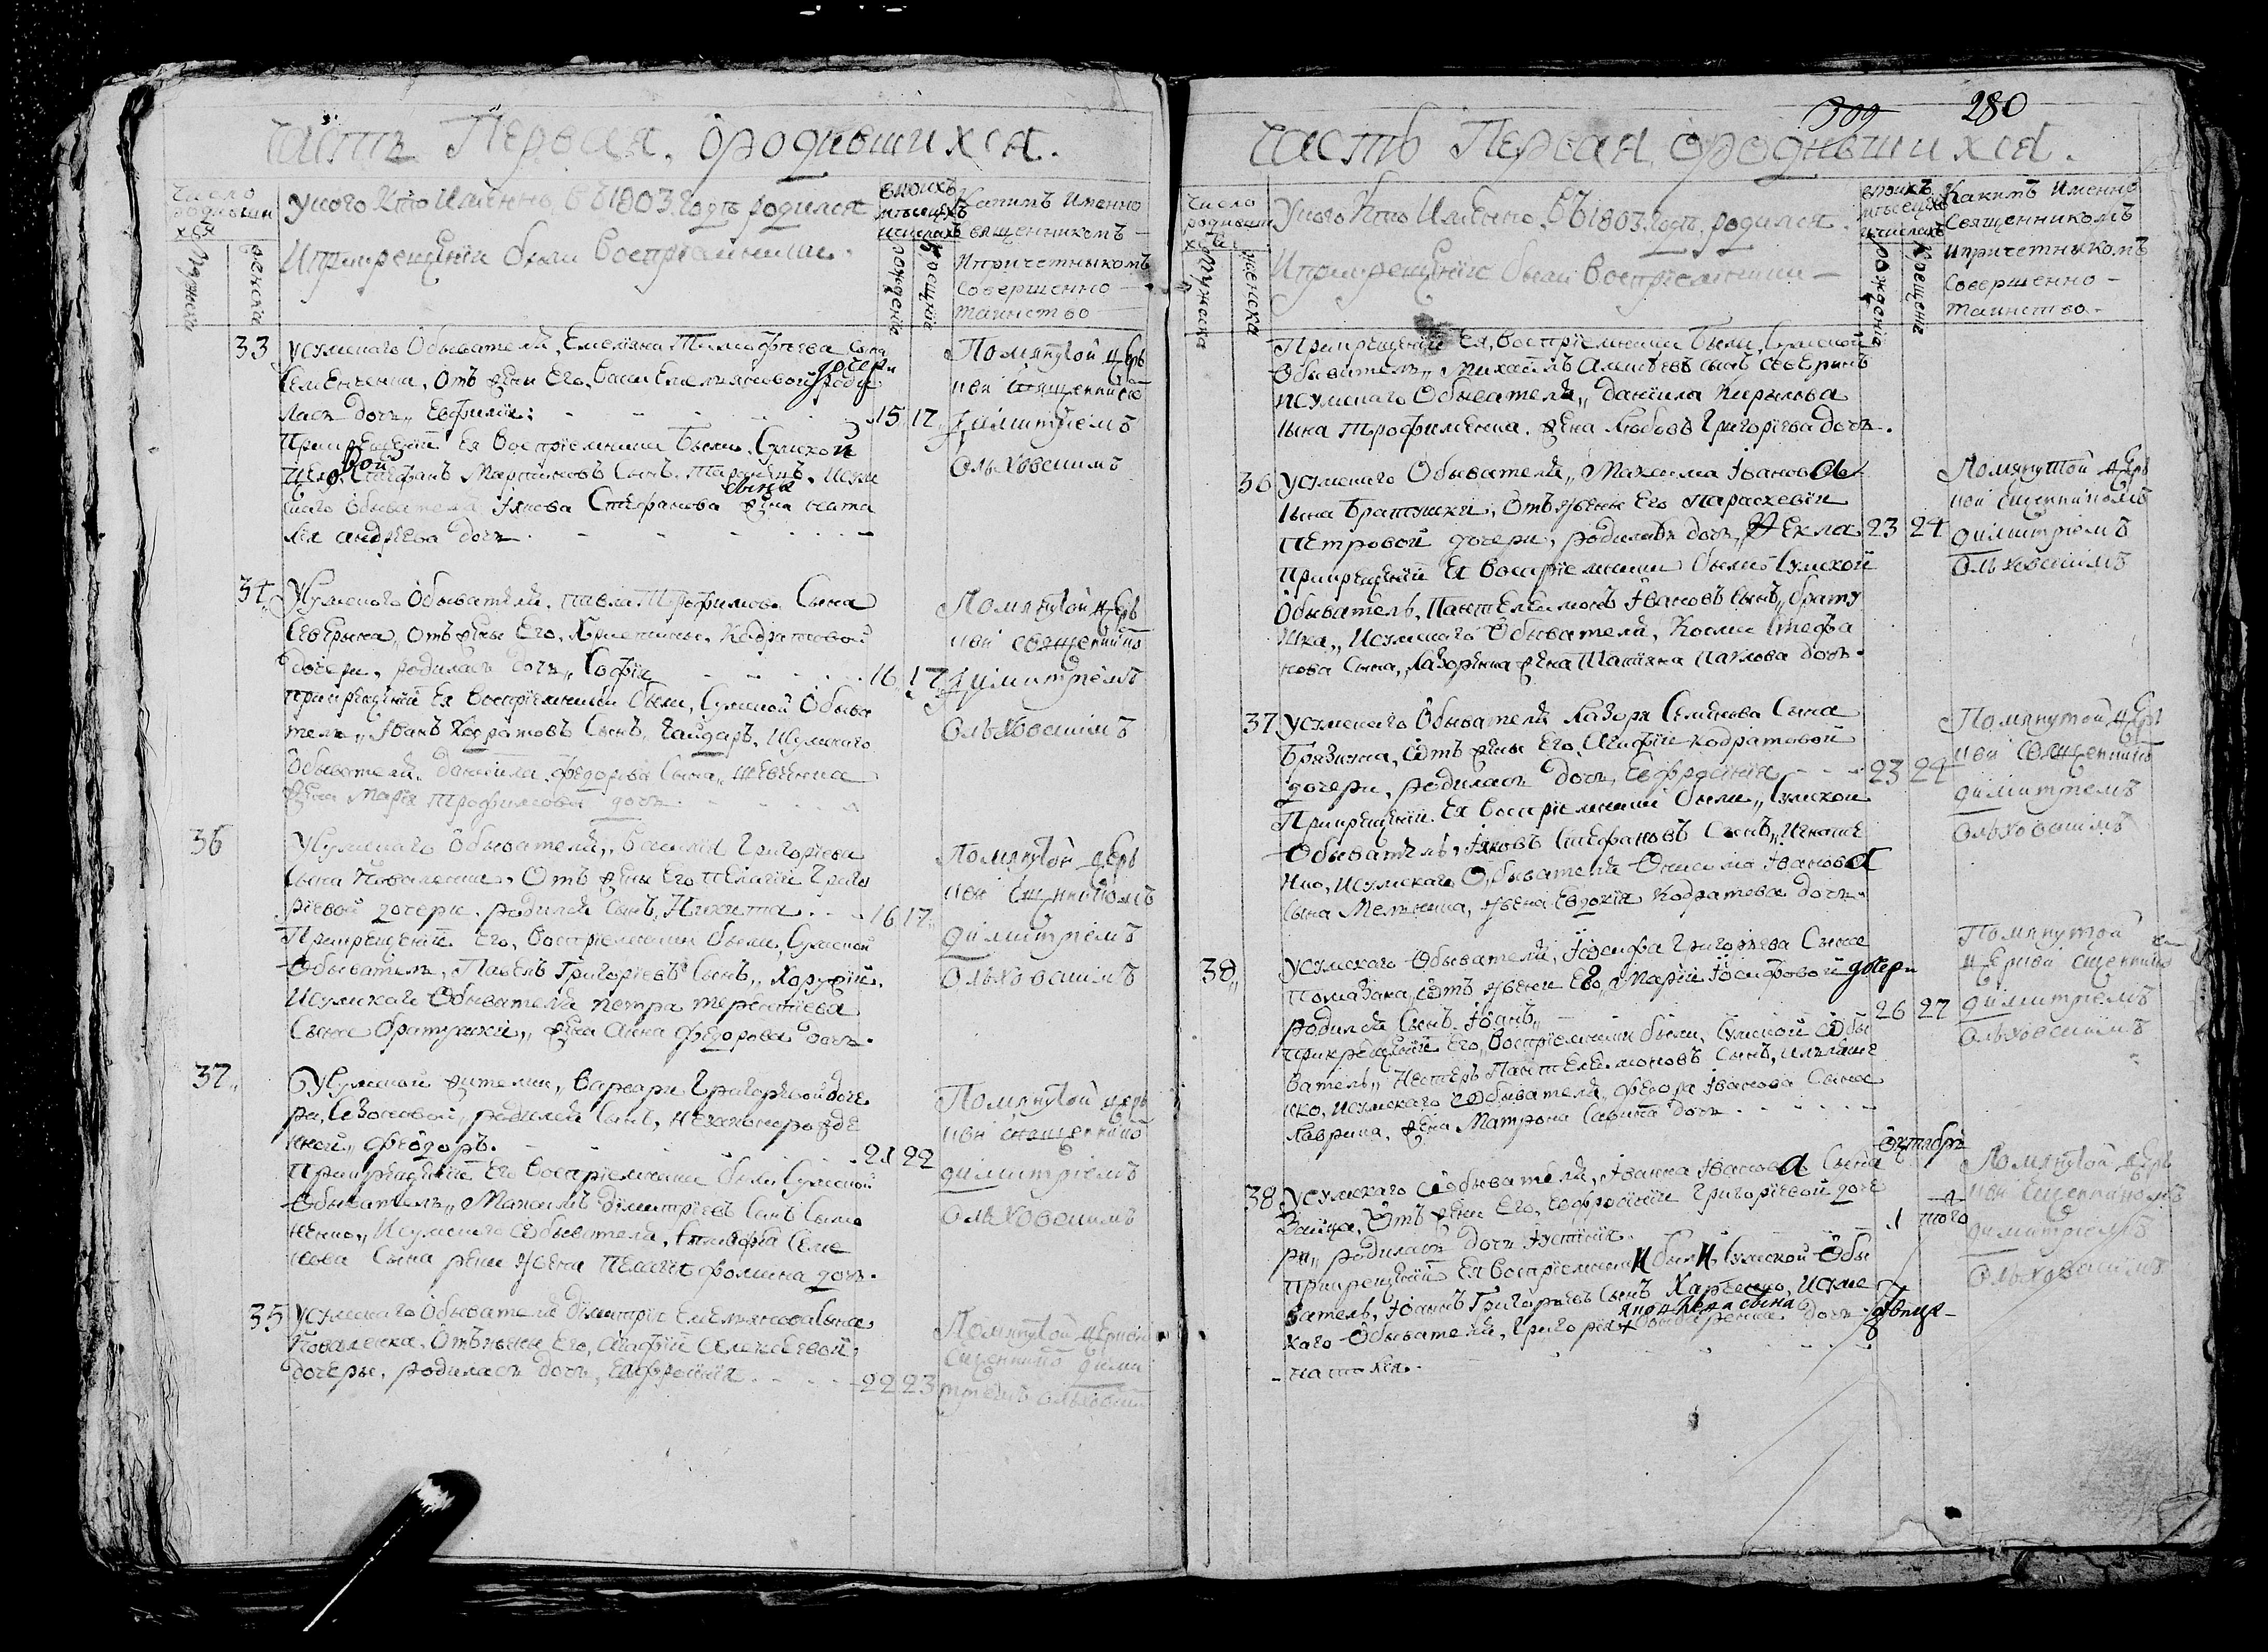 Часть Первая, ородившихся.
Число родившихся
Мужеска
женска
Укого Кто Имянно, въ 1803 годъ родился
Иприкрещеніи были восприемники.
вкоихъ мѣсяцѣхъ ичислахъ
рожденіе
крещеніе
Какимъ Именно
священникомъ
Ипричетникомъ
Совершенно
таинство
33
усумскаго Обывателя, Емеліяна Тимофѣева сына
Семенченка, Отъ жены Его, дочери роди
лась дочь, Евфимія:
15 17
Прикрещеніи Ея восприемники были, Сумской
Стефанъ Мартиновъ сынъ, исум
скаго обывателя Іякова Стефанова сына жена ната
лія андріева дочь
Помянутой цер
кви священником
Димитріемъ
Ольховскимъ
34
Усумского Обывателя, павла Трофимова Сына
Севрына, отъ жены Его, Христины, Кодратовой
дочери, родилась дочь, Софія
16 17
прикрещеніи Ея восприемники были, Сумской Обыва
тель, Іванъ Кодратовъ Сынъ, Гайдаръ, Исумскаго
Обывателя, Даніила Федорова Сына, шевченка
жена Марія Трофимова дочь
Помянутой цер
кви священнико
Димитріемъ
Ольховскимъ
36
Усумскаго Обывателя, Василія Григоріева
сына Коваленка, Отъ жены Его пелагіи Григо
ріевой дочери, родился сынъ, Никита
16 17
Прикрещеніи Его, восприемники были, Сумской
Обыватель, Павелъ Григоріевъ Сынъ, Хоружій,
Исумскаго Обывателя петра терентіева
Сына братушки, жена Анна федорова дочь.
Помянутой цер
кви сщенникомъ
Димитріемъ
Ольховскимъ
37
Усумской жителки, варвары Григоріевой доче
ри, родился сынъ, незаконорожде
нной, Феодоръ.
21 22
Прикрещеніи Его восприемники были Сумской
Обыватель, Максимъ Димитріевъ Сынъ
Исумскаго Обывателя, Семе
нова Сына жена Пелагія фомина дочь.
Помянутой цер
кви священнико
димитріемъ
Ольховскимъ
35
усумскаго Обывателя Димитрія Емеліянова сына
Коваленка, Отъ жены Его, Агафіи Алексеевой
дочеры, родилась дочь, Евфросинія
22 23
Помянутой церкви
сщеннико Дими
тріемъ Ольховским
309 280
Часть Первая, ородившихся.
Число родившихся
Мужеска
женска
Укого Кто Имянно, въ 1803 годъ, родился
Иприкрещеніи были восприемники
вкоихъ мѣсяцехъ ичислахъ
рожденіе
Крещеніе
Какимъ Именно
Священникомъ
Ипричетникомъ
Совершенно
таинство
Прикрещеніи Ея, восприемники были, Сумской
Обыватель, михаилъ сынъ севѣринъ
исумскаго Обывателя, Даніила Кирылова
сына Трофименка, жена Любовъ Григоріева дочь.
36
усумскаго Обывателя, Максима Іванова
сына Братушки, Отъ жены Его Параскевіи
петровой дочери, родилась дочь, Фекла
23 24
прикрещеніи Ея восприемники были Сумской
Обыватель, Пантелеимонъ Івановъ сынъ, брату
шка, Исумскаго Обывателя, Космы Стефа
нова Сына, Лазорѣнка жена Татіяна Павлова дочь.
Помянутой цер
кви сщенникомъ
димитріемъ
Ольховскимъ
37
усумскаго Обывателя Лазоря Семенова Сына
Брязкина, Отъ жены Его, Агафіи кодратовой
дочери, родилась дочь, Ефросинія
23 24
Прикрещеніи Ея восприемники были, Сумской
Обыватель, Іяковъ Стефановъ Сынъ, Игнате
нко, исумскаго Обывателя Онисима Іванова
сына Мелника, жена Евдокія Кодратева дочь.
Помянутой цер
кви священнико
димитріемъ
Ольховскимъ
38
усумскаго Обывателя, Іосифа Григоріева Сына
Помазана, Отъ жены Его, Маріи Іосифовой дочери
родился сынъ Іоанъ,
26 27
прикрещеніи Его, восприемники были, Сумской Обы
ватель, Нестеръ Пантелеимоновъ Сынъ,
исумскаго Обывателя, Феодора Іванова Сына
Лаврика, жена Матрона Савина дочь
Помянутой
церкви сщеннико
димитріемъ
Ольховскимъ
Октябрь
38
усумскаго Обывателя, Іванна Іванова Сына
Зайца, Отъ жены Его, Евфросініи Григоріевой доче
ри, родилась дочь Іустінія.
1 того
прикрещеніи Ея восприемники были Сумской Обы
ватель, Іоаннъ Григоріевъ Сынъ Харченко, исумс
каго Обывателя, Григорія сына дочь девица
наталія.
Помянутой цер
кви сщенникомъ
димитріемъ
Ольховскимъ